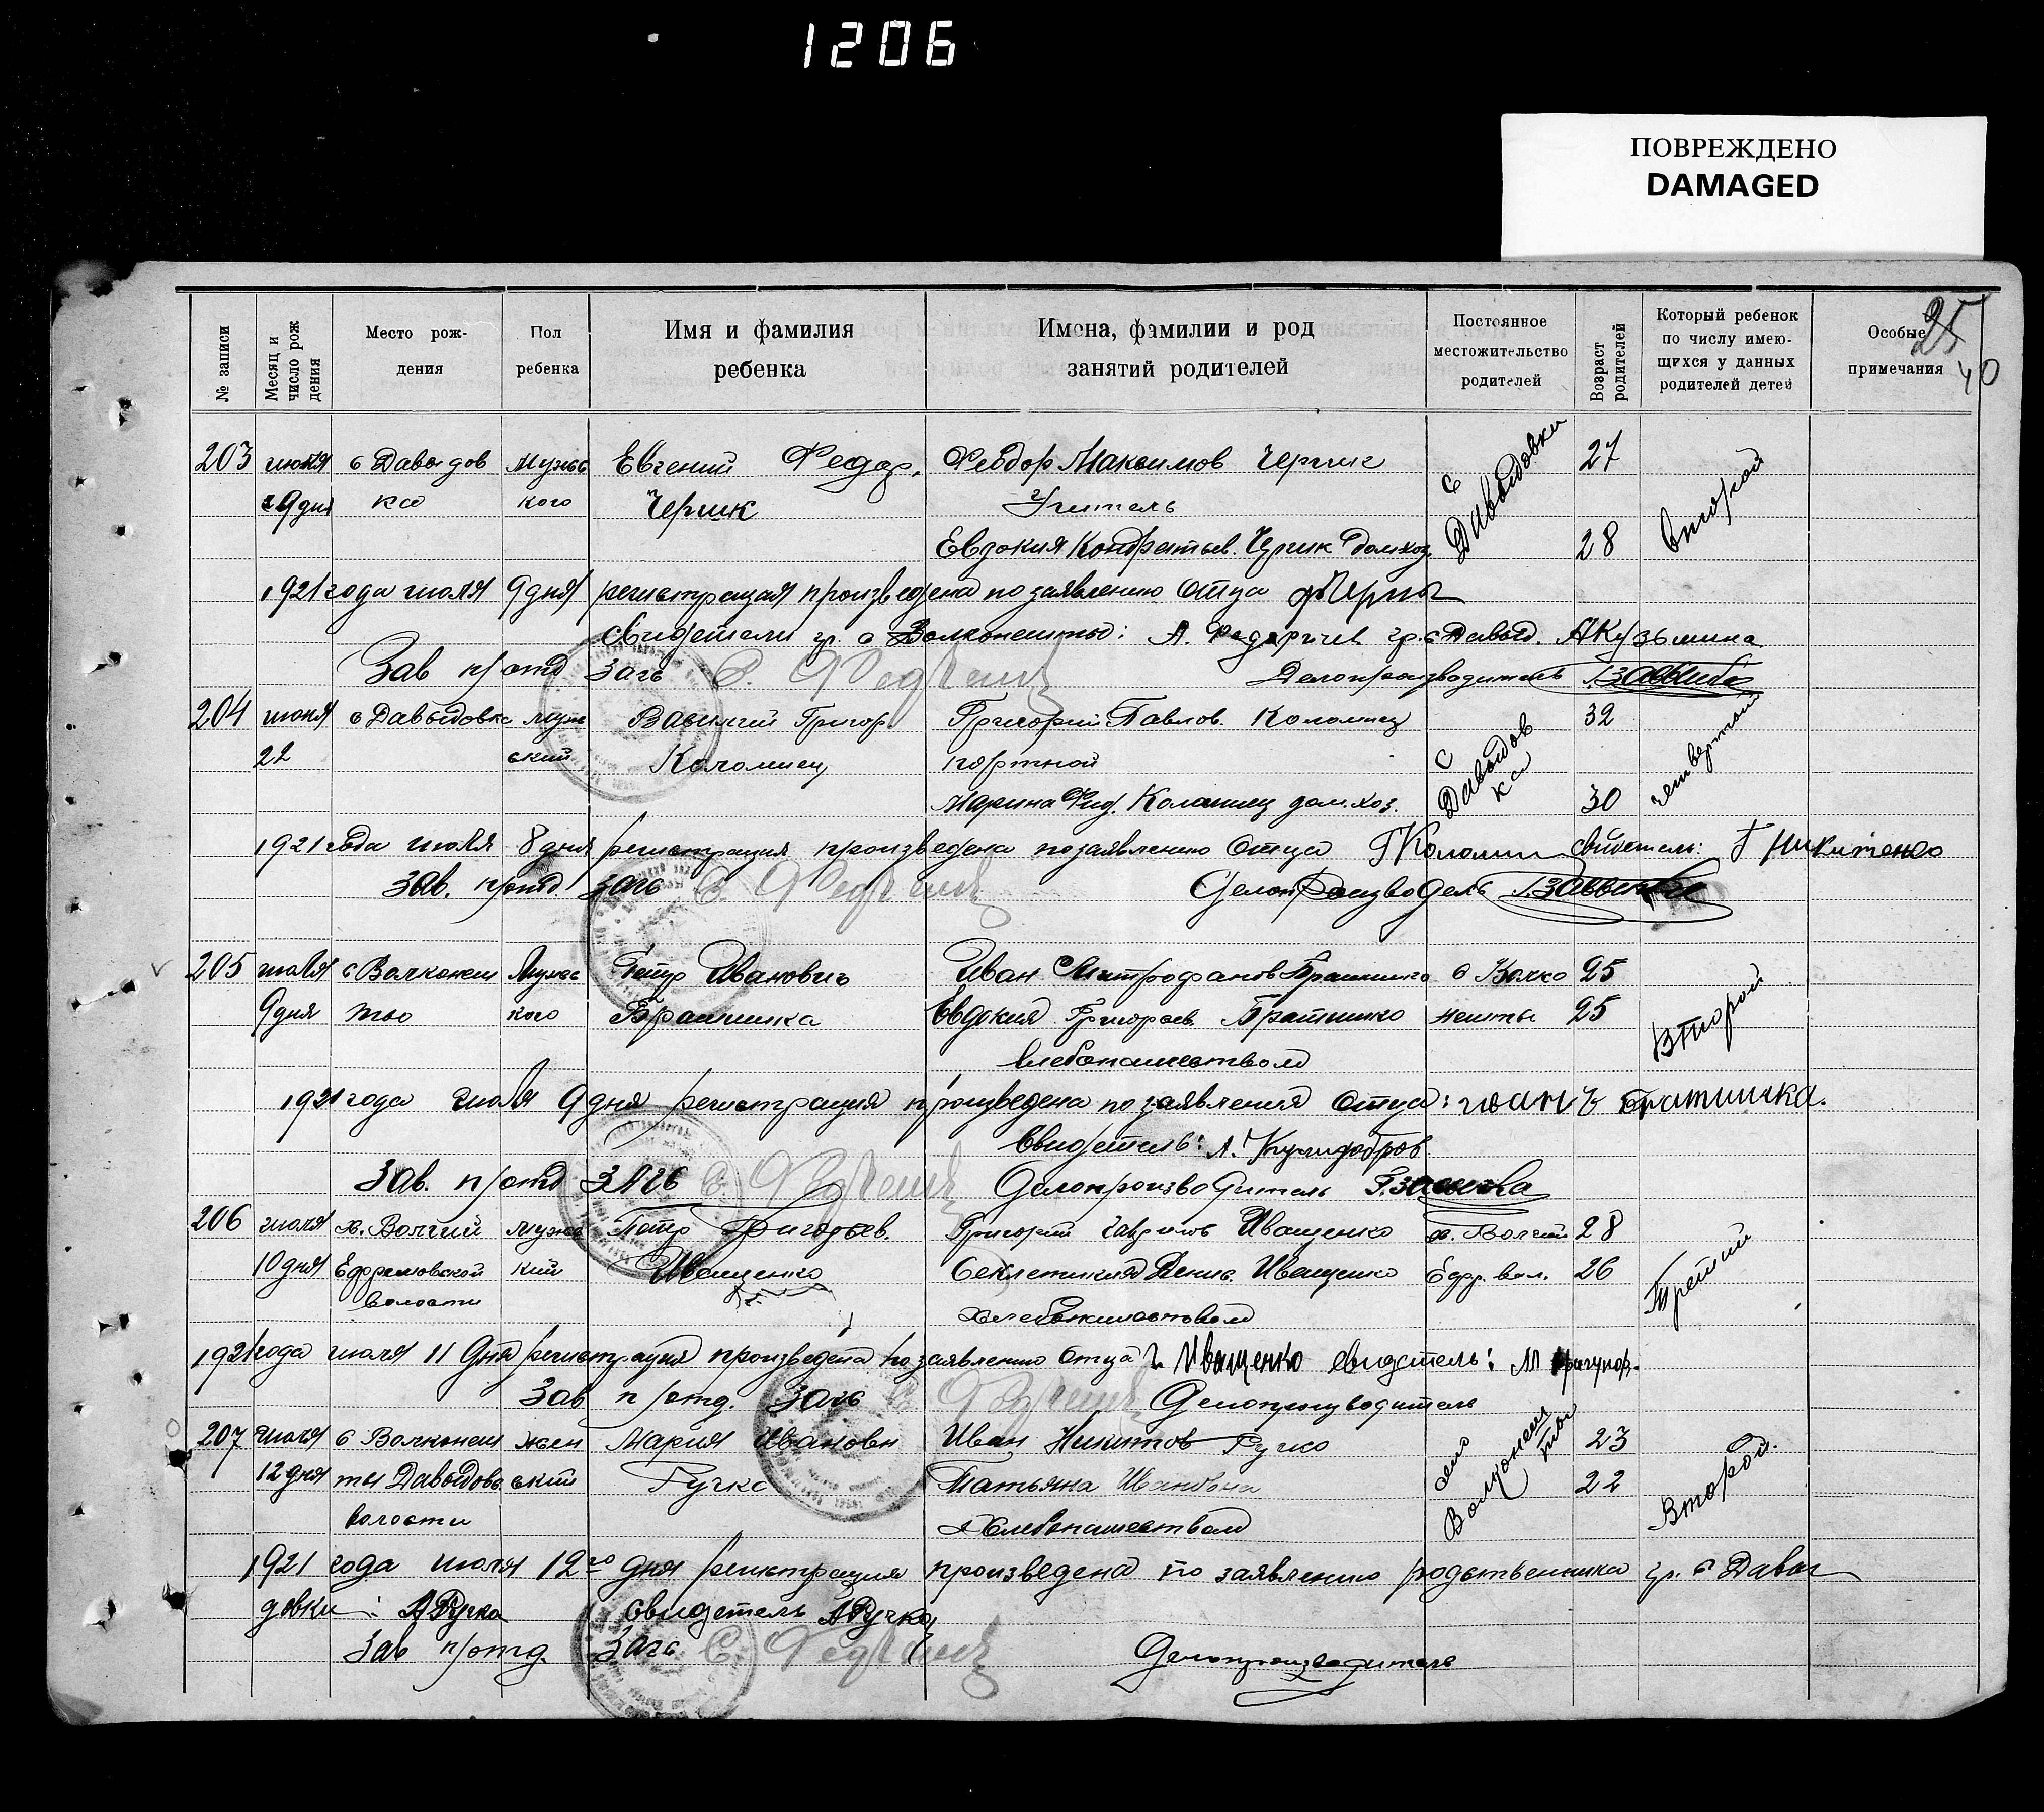 1206
ПОВРЕЖДЕНО
DAMAGED
25
40
№ записи
Месяц и число рождения
Место рождения
Пол ребенка
Имя и фамилия ребенка
Имена, фамилии и род занятий родителей
Постоянное местожительство родителей
Возраст родителей
Который ребенок по числу имеющихся у данных родителей детей
Особые примечания
203 июля с Давыдов мужс Евгений Федор. Феодор Максимов Черник с Давыдовка 27 второй
9 дня ка кого Черник Учитель
Евдокия Кондратьев. Черник домхоз 28
1921 года июля 9 дня регистрация произведена по заявлению отца
Свидетели гр. с Волконешты: А. гр. с Давыд. А Кузьмина
Зав п/отд Загс Делопроизводитель
204 июня с Давыдовка муж Василий Григор. Григорий Павлов. Коломиец с Давыдовка 32 четвертый
22 ский Коломиец портной
Марина Коломиец дом. хоз. 30
1921 года июля 8 дня регистрация произведена по заявлению отца Г Коломи свидетель: Г Никитенко
Зав. п/отд. Загс Делопроизводель
205 июля с Волконеш Мужс Петр Иванович Иван Митрофанов Братишко с Волко 25 Второй
9 дня ты кого Братишка Евдокия Григорьев. Братишко нешты 25
хлебопашеством
1921 года июля 9 дня регистрация произведена по заявления отца: братишка.
Свидетель: А.
Зав. п/отд ЗАГС Делопроизводитель
206 июля х. Волчий мужс Петр Григорьев. Григорий Иващенко х. Волчий 28 Третий
10 дня Ефремовской кий Иващенко Иващенко Ефр. вол. 26
волости хлебопашеством
1921 года июля 11 дня регистрация произведена по заявлению отца Г. Иващенко свидетель: М
Зав п/отд. Загс Делопроизводитель
207 июля с Волконеш жен Мария Ивановн Иван Никитов Ручко село Волконешты 23 Второй.
12 дня ты Давыдовс. ский Ручко Татьяна Ивановна 22
волости хлебопашеством
1921 года июля 12го дня регистрация произведена по заявлению родственника гр. с Давы
довки: А Ручка свидетель А Ручка
Зав п/отд. Загс Делопроизводитель